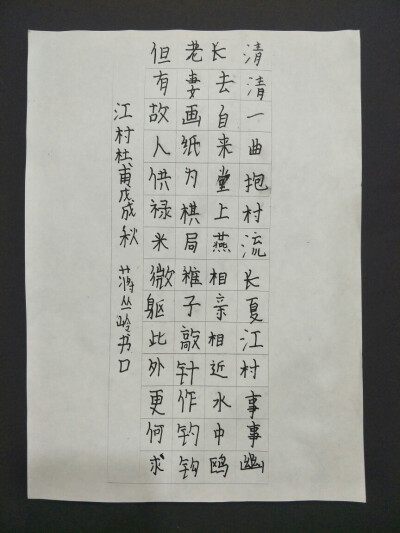 清清一曲抱村流长夏江村事事幽
长去自来堂上燕相亲相近水中鸥
老妻画纸为棋局稚子敲针作钓钩
但有故人供禄米微躯此外更何求
江村杜甫戊戌秋 蒋丛岭书口